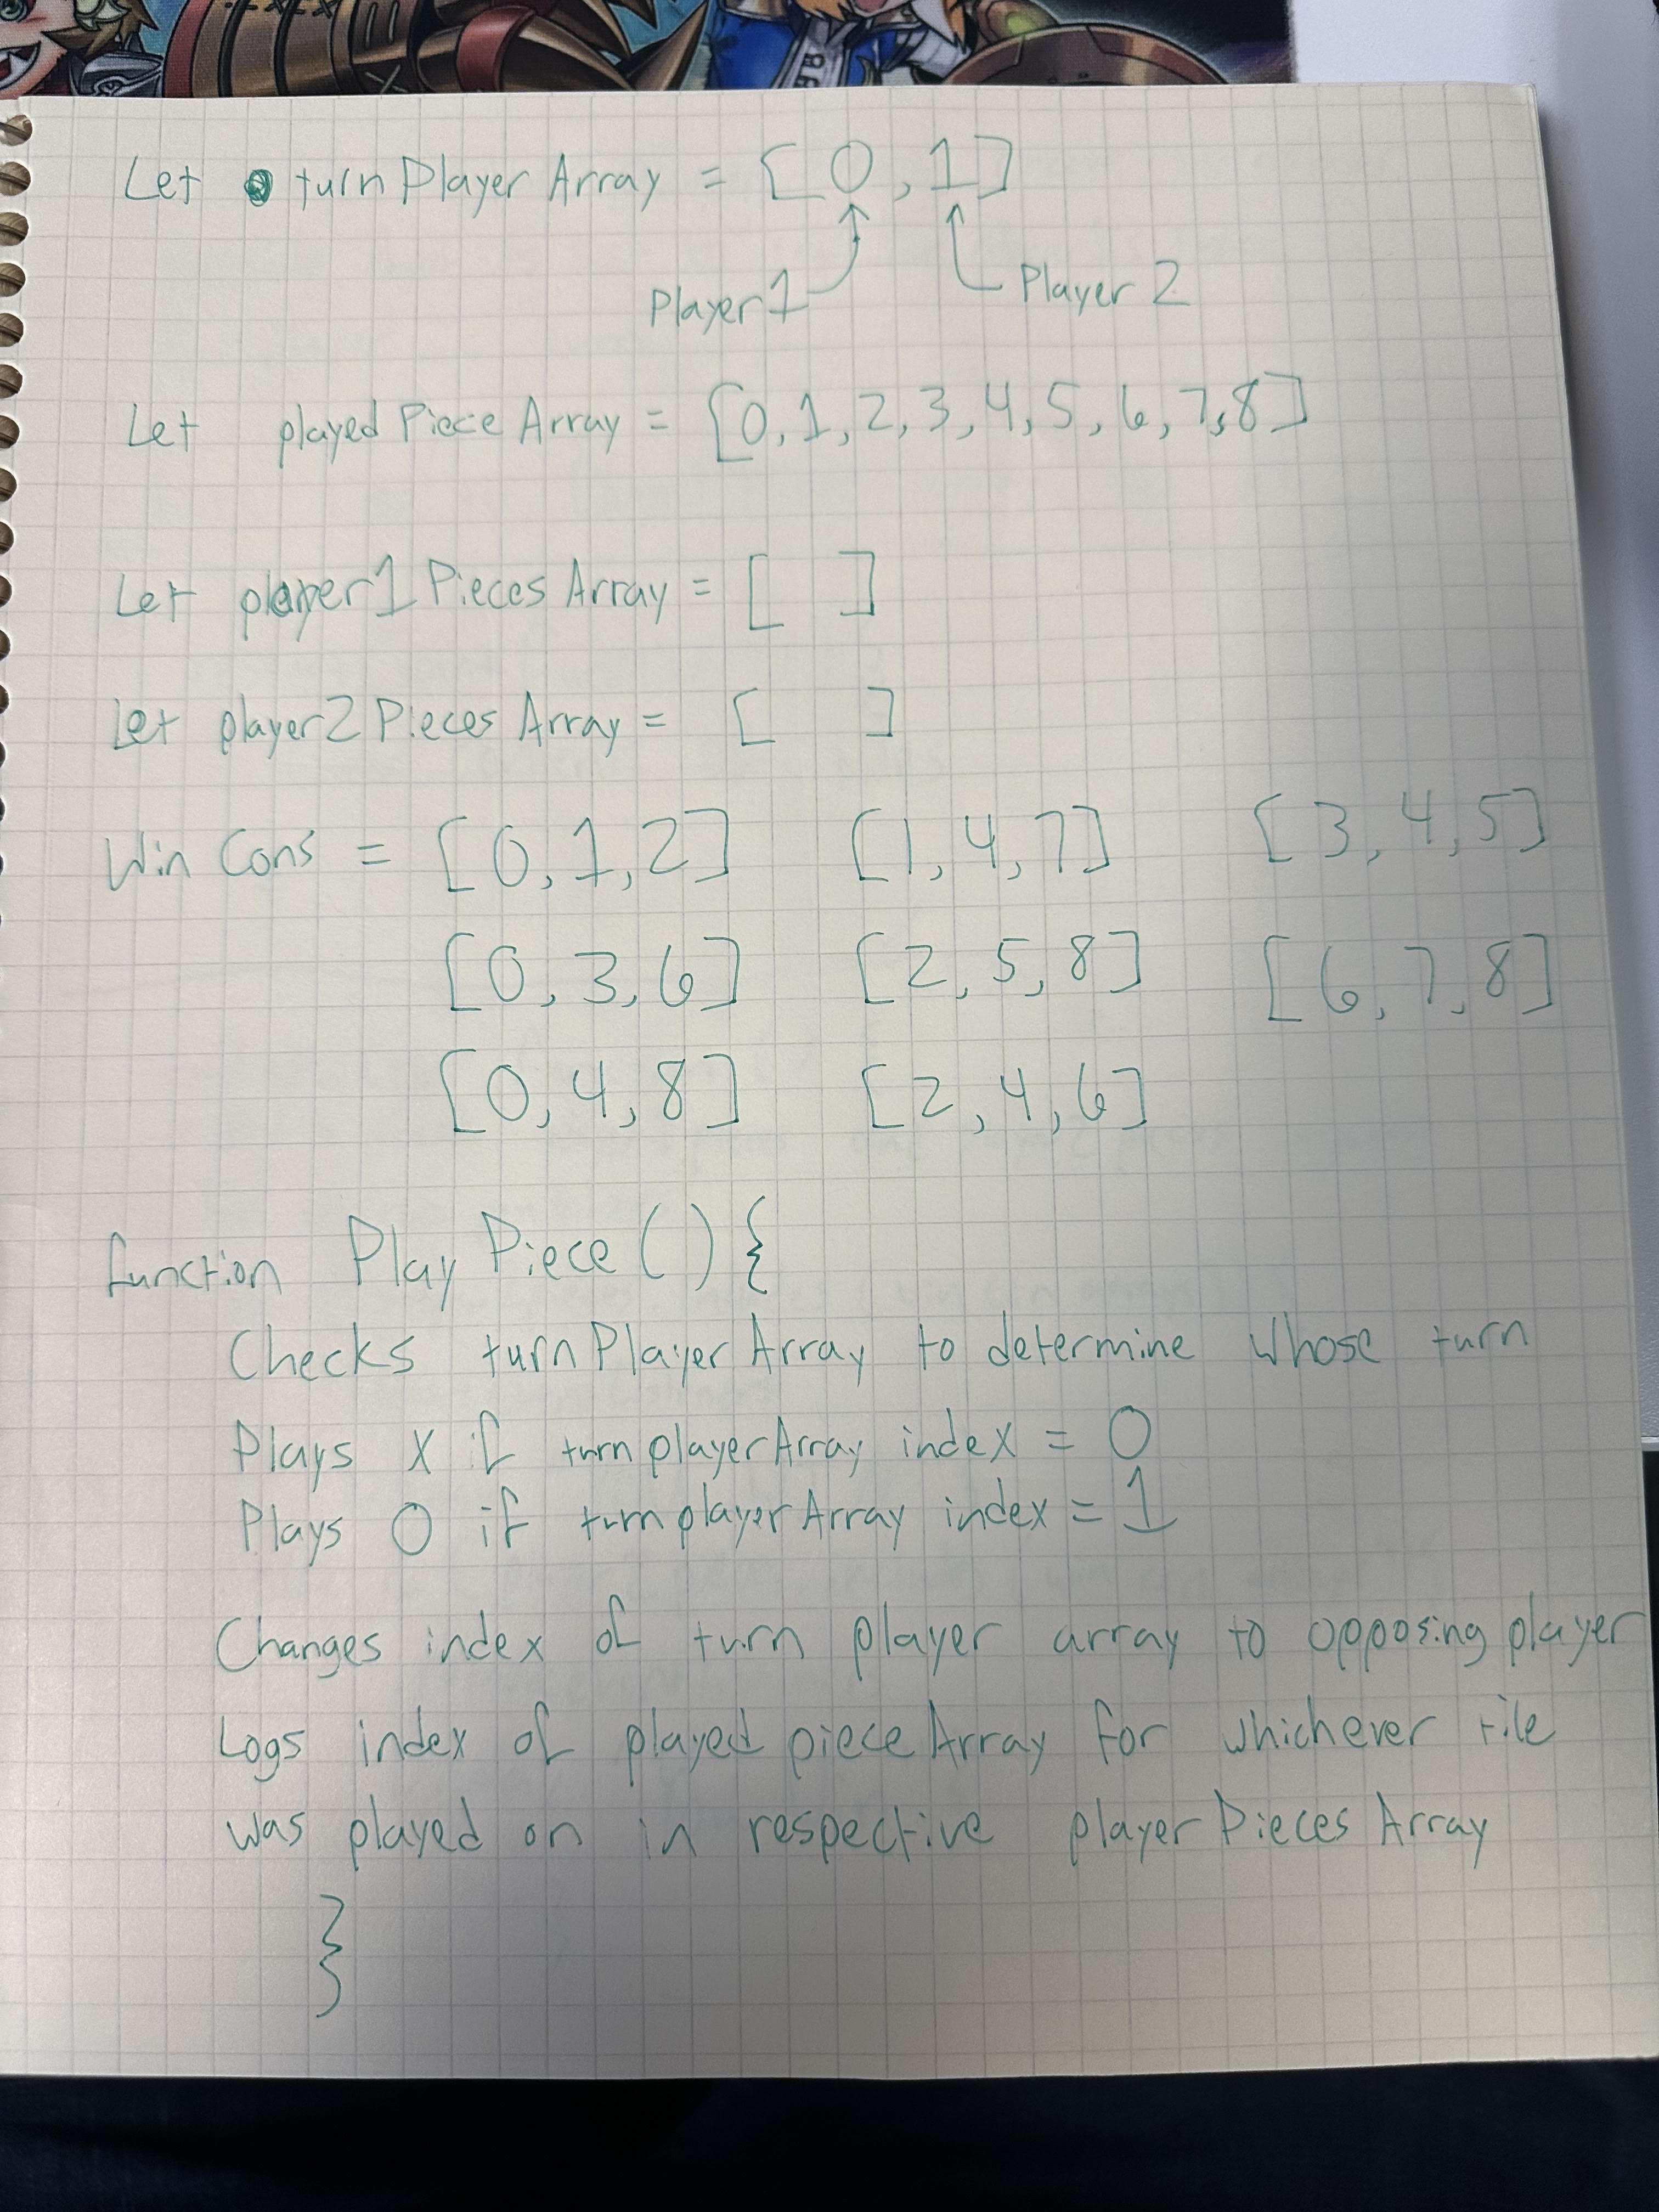 Let turnPlayerArray = [0, 1]
Player 1 Player 2
Let playedPieceArray = [0, 1, 2, 3, 4, 5, 6, 7, 8]
Let player1PiecesArray = [ ]
Let player2PiecesArray = [ ]
Win Cons = [0, 1, 2] [1, 4, 7] [3, 4, 5]
[0, 3, 6] [2, 5, 8] [6, 7, 8]
[0, 4, 8] [2, 4, 6]
function PlayPiece() {
Checks turnPlayerArray to determine whose turn
Plays X if turnplayerArray index = 0
Plays O if turnplayerArray index = 1
Changes index of turn player array to opposing player
Logs index of played pieceArray for whichever tile
was played on in respective playerPiecesArray
}